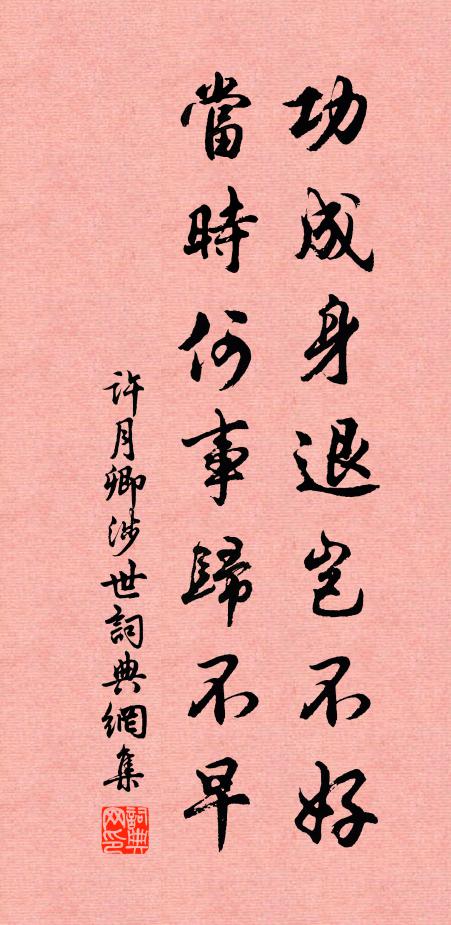 功成身退岂不好
當時何事歸不早
許月卿涉世詞典網集
詞典網印